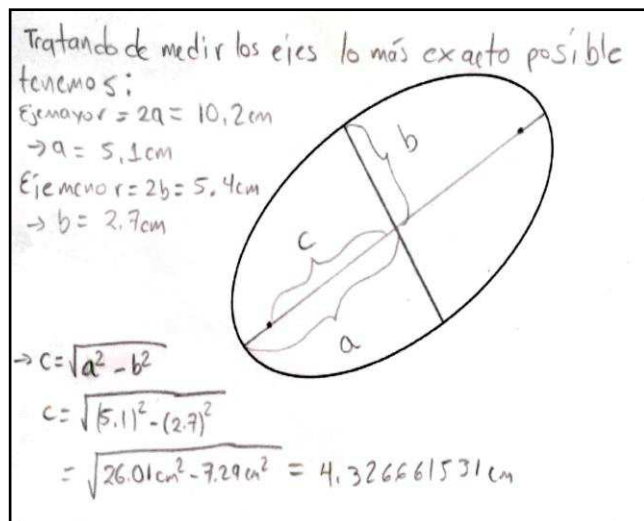 Tratando de medir los ejes lo más exacto posible
tenemos:
Eje mayor = 2a = 10,2cm
→ a = 5,1cm
Eje menor = 2b = 5,4cm
→ b = 2,7cm
b
c
a
→ c = √a² - b²
c = √(5,1)² - (2,7)²
= √26,01cm² - 7,29cm² = 4,326661531cm